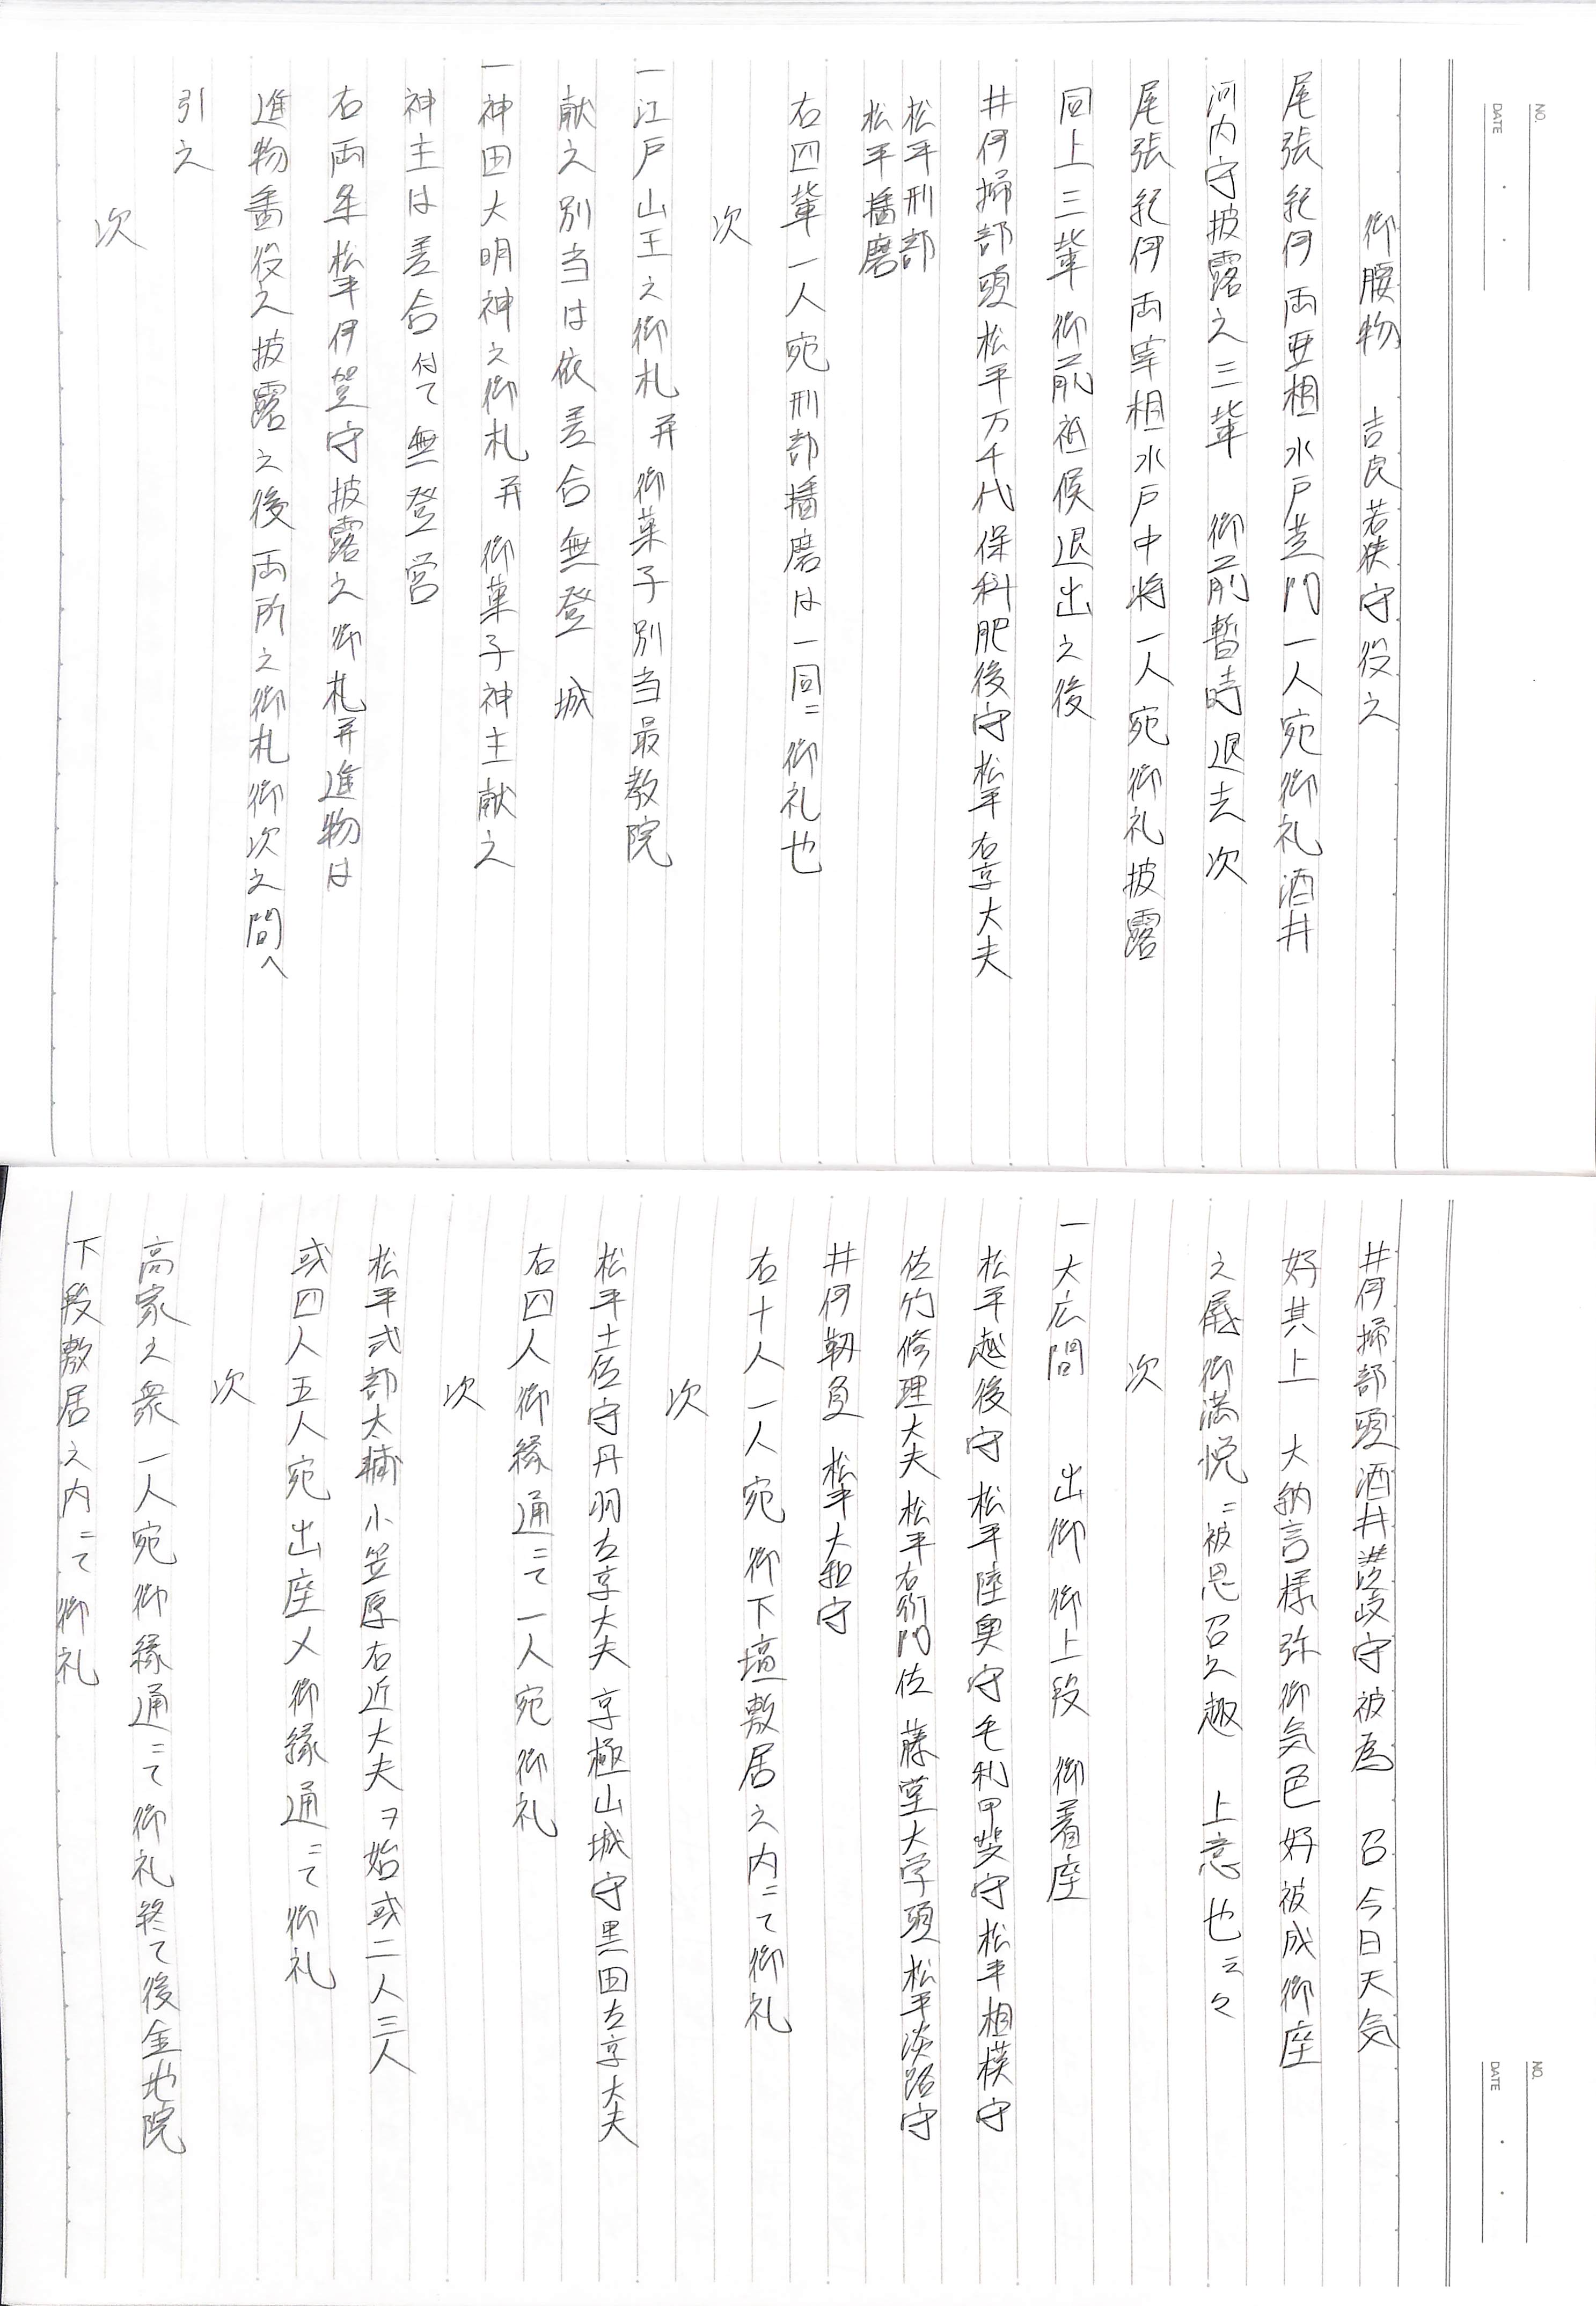 NO.
DATE
御腰物 吉良若狭守役之
尾張紀伊両亜相水戸黄門一人宛御礼酒井
河内守披露之三輩 御前暫時退去次
尾張紀伊両宰相水戸中将一人宛御礼披露
同上三輩御前祗候退出之後
井伊掃部頭松平万千代保科肥後守松平右京大夫
松平刑部
松平播磨
右四輩一人宛刑部播磨は一同ニ御礼也
次
一江戸山王之御札并御菓子別当最教院
献之別当は依差合無登 城
一神田大明神之御札并御菓子神主献之
神主は差合付て無登営
右両条松平伊賀守披露之御札并進物は
進物番役之披露之後両所之御札御次之間へ
引之
次
NO.
DATE
井伊掃部頭酒井讃岐守被為 召今日天気
好其上 大納言様弥御気色好被成御座
之儀御満悦ニ被思召之趣 上意也云々
次
一大広間 出御御上段 御着座
松平越後守松平陸奥守毛利甲斐守松平相模守
佐竹修理大夫松平右衛門佐藤堂大学頭松平淡路守
井伊靱負 松平大和守
右十人一人宛御下壇敷居之内ニて御礼
次
松平土佐守丹羽左京大夫京極山城守黒田左京大夫
右四人御縁通ニて一人宛御礼
次
松平式部太輔小笠原右近大夫ヲ始或二人三人
或四人五人宛出座〆御縁通ニて御礼
次
高家之衆一人宛御縁通ニて御礼終て後金地院
下段敷居之内ニて御礼